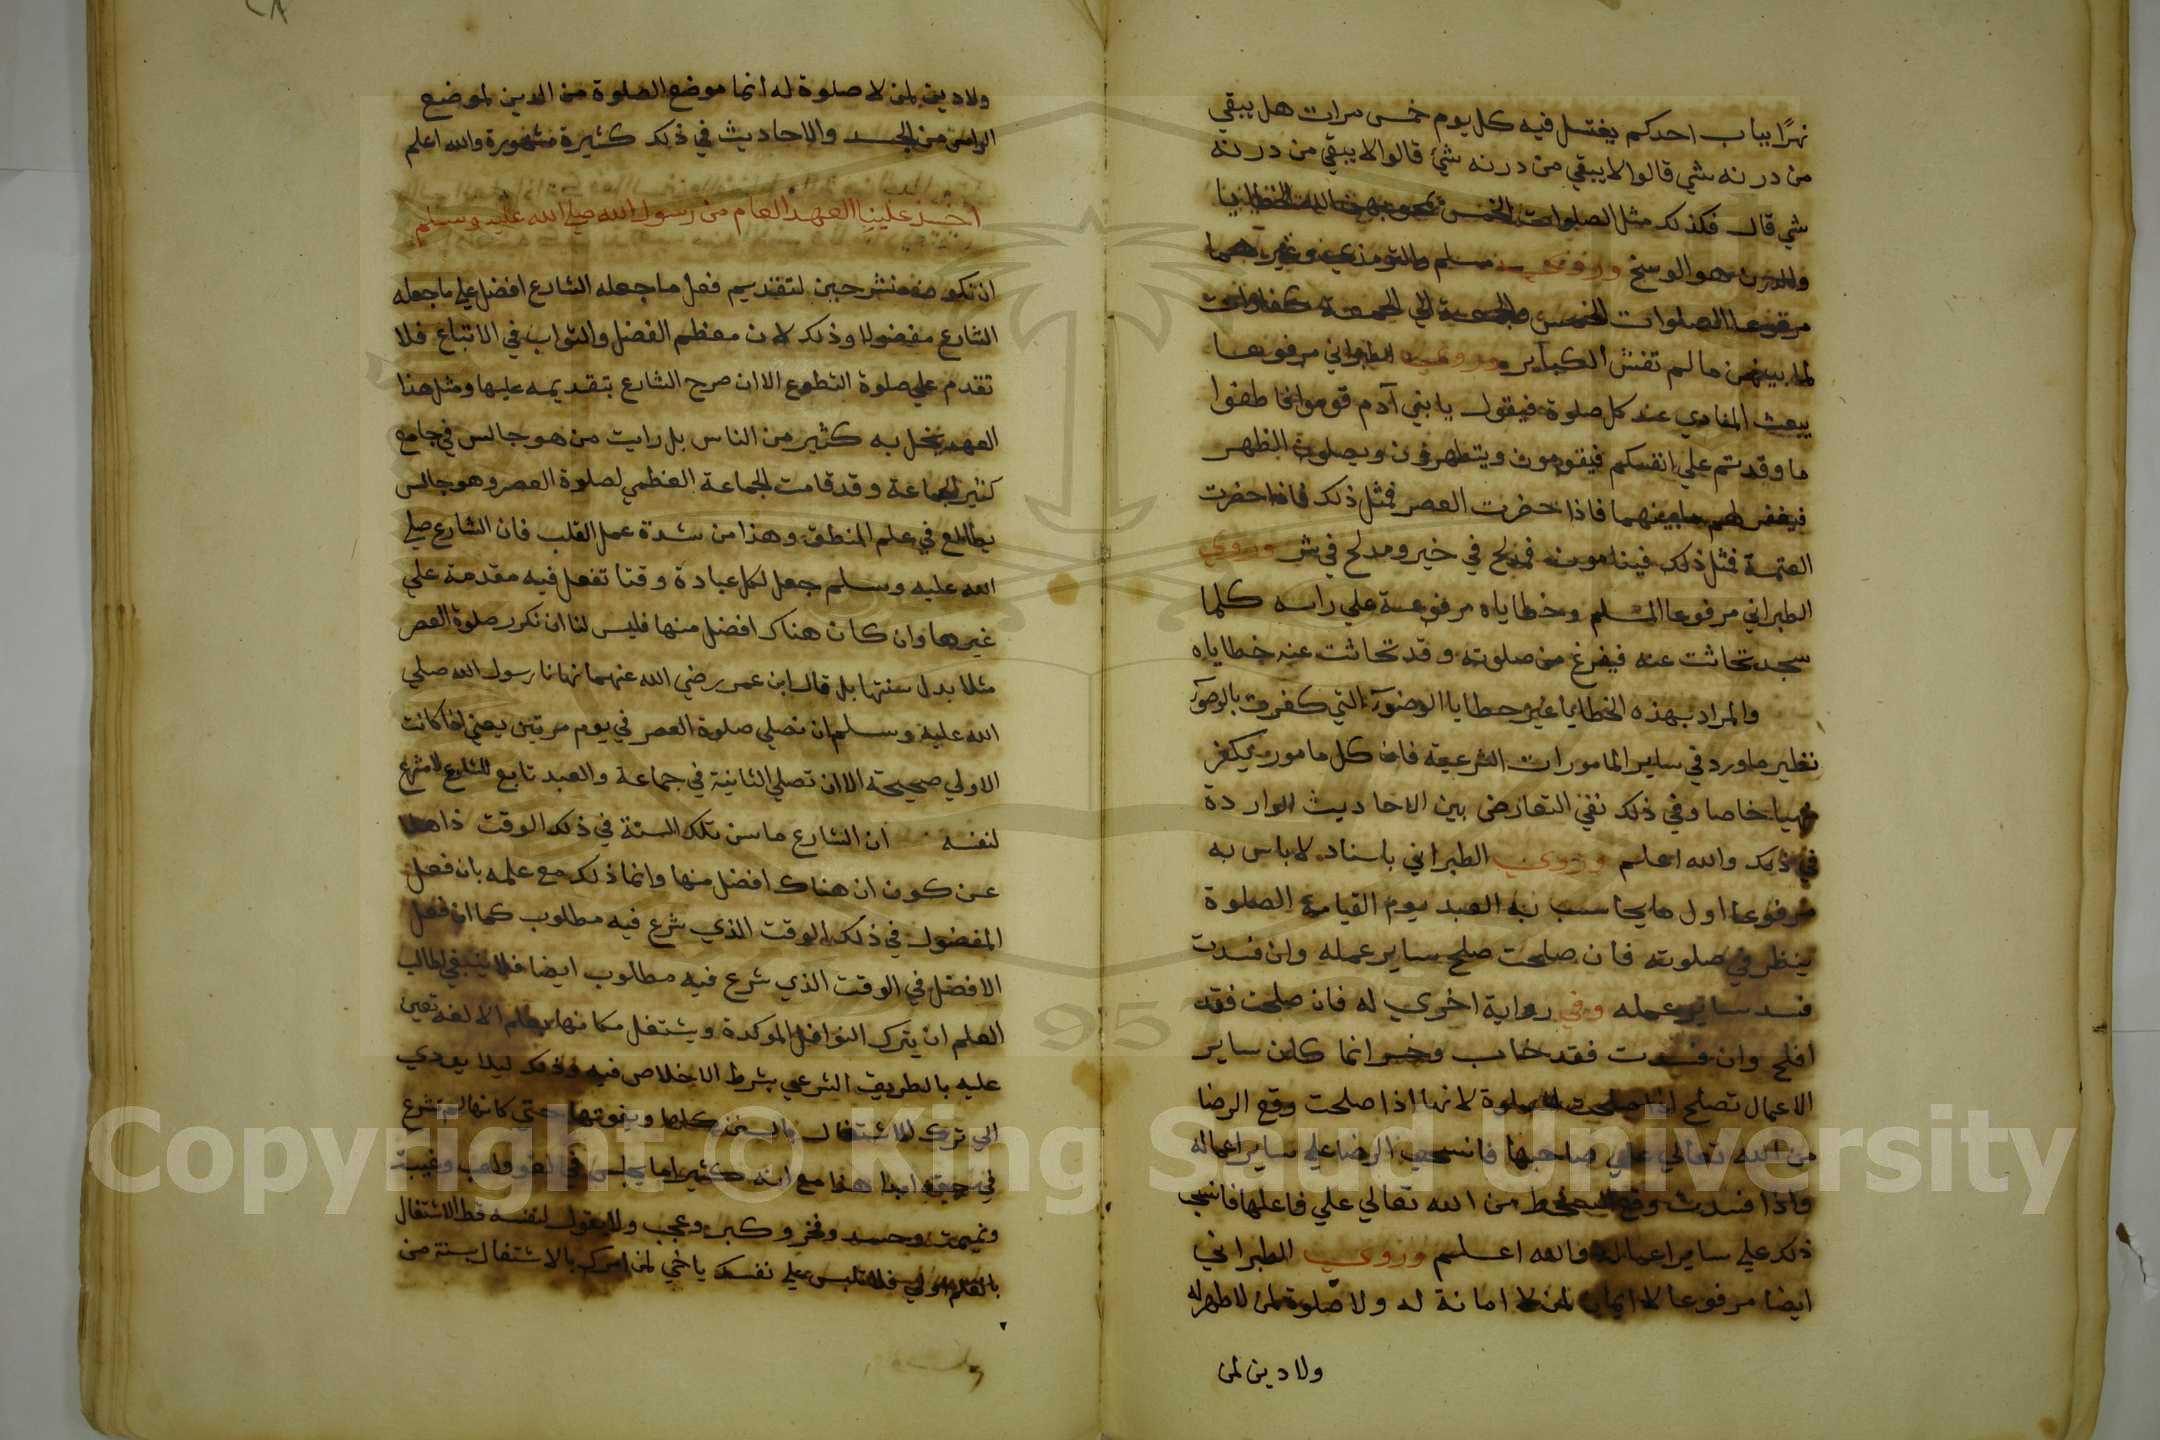 نهرًا بباب احدكم يغتسل فيه كل يوم خمس مرات هل يبقي
من درنه شي قالوا لا يبقي من درنه شي قالوا لا يبقي من درنه
شي قال فكذلك مثل الصلوات الخمس يمحو الخطايا
والدرن هو الوسخ وروي مسلم والترمذي وغيرهما
مرفوعا الصلوات الخمس والجمعة الي الجمعة كفارات
لما بينهن ما لم تغش الكبآير وروي الطبراني مرفوعا
يبعث المنادي عند كل صلوة فيقول يا بني آدم قوموا فاطفوا
ما وقدتم علي انفسكم فيقومون ويتطهرون ويصلون الظهر
فيغفر لهم ما بينهما فاذا حضرت العصر فمثل ذلك فاذا حضرت
العتمة فمثل ذلك فينامون فمدلج في خير ومدلج في شر وروي
الطبراني مرفوعا المسلم وخطاياه مرفوعة علي راسه كلما
سجد تحاتت عنه فيفرغ من صلوته وقد تحاتت عنه خطاياه
والمراد بهذه الخطايا غير خطايا الوضوء التي كفرت بالوضوء
نظير ما ورد في ساير المامورات الشرعية فان كل مامور يكفر
منهيا خاصا وفي ذلك نفي التعارض بين الاحاديث الواردة
في ذلك والله اعلم وروي الطبراني باسناد لا باس به
مرفوعا اول ما يحاسب به العبد يوم القيامة الصلوة
ينظر في صلوته فان صلحت صلح ساير عمله وان فسدت
فسد ساير عمله وفي رواية اخري له فان صلحت فقد
افلح وان فسدت فقد خاب وخسر انما كان ساير
الاعمال تصلح اذا صلحت الصلوة لانها اذا صلحت وقع الرضا
من الله تعالي علي صاحبها فانسحب الرضا علي ساير اعماله
واذا فسدت وقع السخط من الله تعالي علي فاعلها فانسحب
ذلك علي ساير اعماله والله اعلم وروي الطبراني
ايضا مرفوعا لا ايمان لمن لا امانة له ولا صلوة لمن لا طهر له
ولا دين لمن
ولا دين لمن لا صلوة له انما موضع الصلوة من الدين لموضع
الراس من الجسد والاحاديث في ذلك كثيرة مشهورة والله اعلم
اخذ علينا العهد العام من رسول الله صلي الله عليه وسلم
ان نكون منشرحين لتقديم فعل ما جعله الشارع افضل علي ما جعله
الشارع مفضولا وذلك لان معظم الفضل والثواب في الاتباع فلا
تقدم علي صلوة التطوع الا ان صرح الشارع بتقديمه عليها ومثل هذا
العهد يخل به كثير من الناس بل رايت من هو جالس في جامع
كثير الجماعة وقد قامت الجماعة العظمي لصلوة العصر وهو جالس
يطالع في علم المنطق وهذا من شدة عمل القلب فان الشارع صلي
الله عليه وسلم جعل لكل عبادة وقتا تفعل فيه مقدمة علي
غيرها وان كان هناك افضل منها فليس لنا ان نكرر صلوة العصر
مثلا بدل سنتها بل قال ابن عمر رضي الله عنهما نهانا رسول الله صلي
الله عليه وسلم ان نصلي صلوة العصر في يوم مرتين يعني اذا كانت
الاولي صحيحة الا ان تصلي الثانية في جماعة والعبد تابع للشارع لا مشرع
لنفسه ان الشارع ما سن تلك السنة في ذلك الوقت ذاهلا
عن كون ان هناك افضل منها وانما ذلك مع علمه بان فعل
المفضول في ذلك الوقت الذي شرع فيه مطلوب كما ان فعل
الافضل في الوقت الذي شرع فيه مطلوب ايضا فلا ينبغي لطالب
العلم ان يترك النوافل الموكدة ويشتغل مكانها بعلم الا لغة تعين
عليه بالطريق الشرعي بشرط الاخلاص فيه وذلك ليلا يودي
الي ترك الاشتغال بالسنن كلها ويفوتها حتي كانها لم تشرع
في حقه ابدا هذا مع انه كثيرا ما يجلس في لغو ولعب وغيبة
ونميمة وحسد وفخر وكبر وعجب ولا يقول لنفسه قط الاشتغال
بالعلم اولي فلا تلبس علي نفسك يا اخي لمن امرك بالاشتغال بسنة من